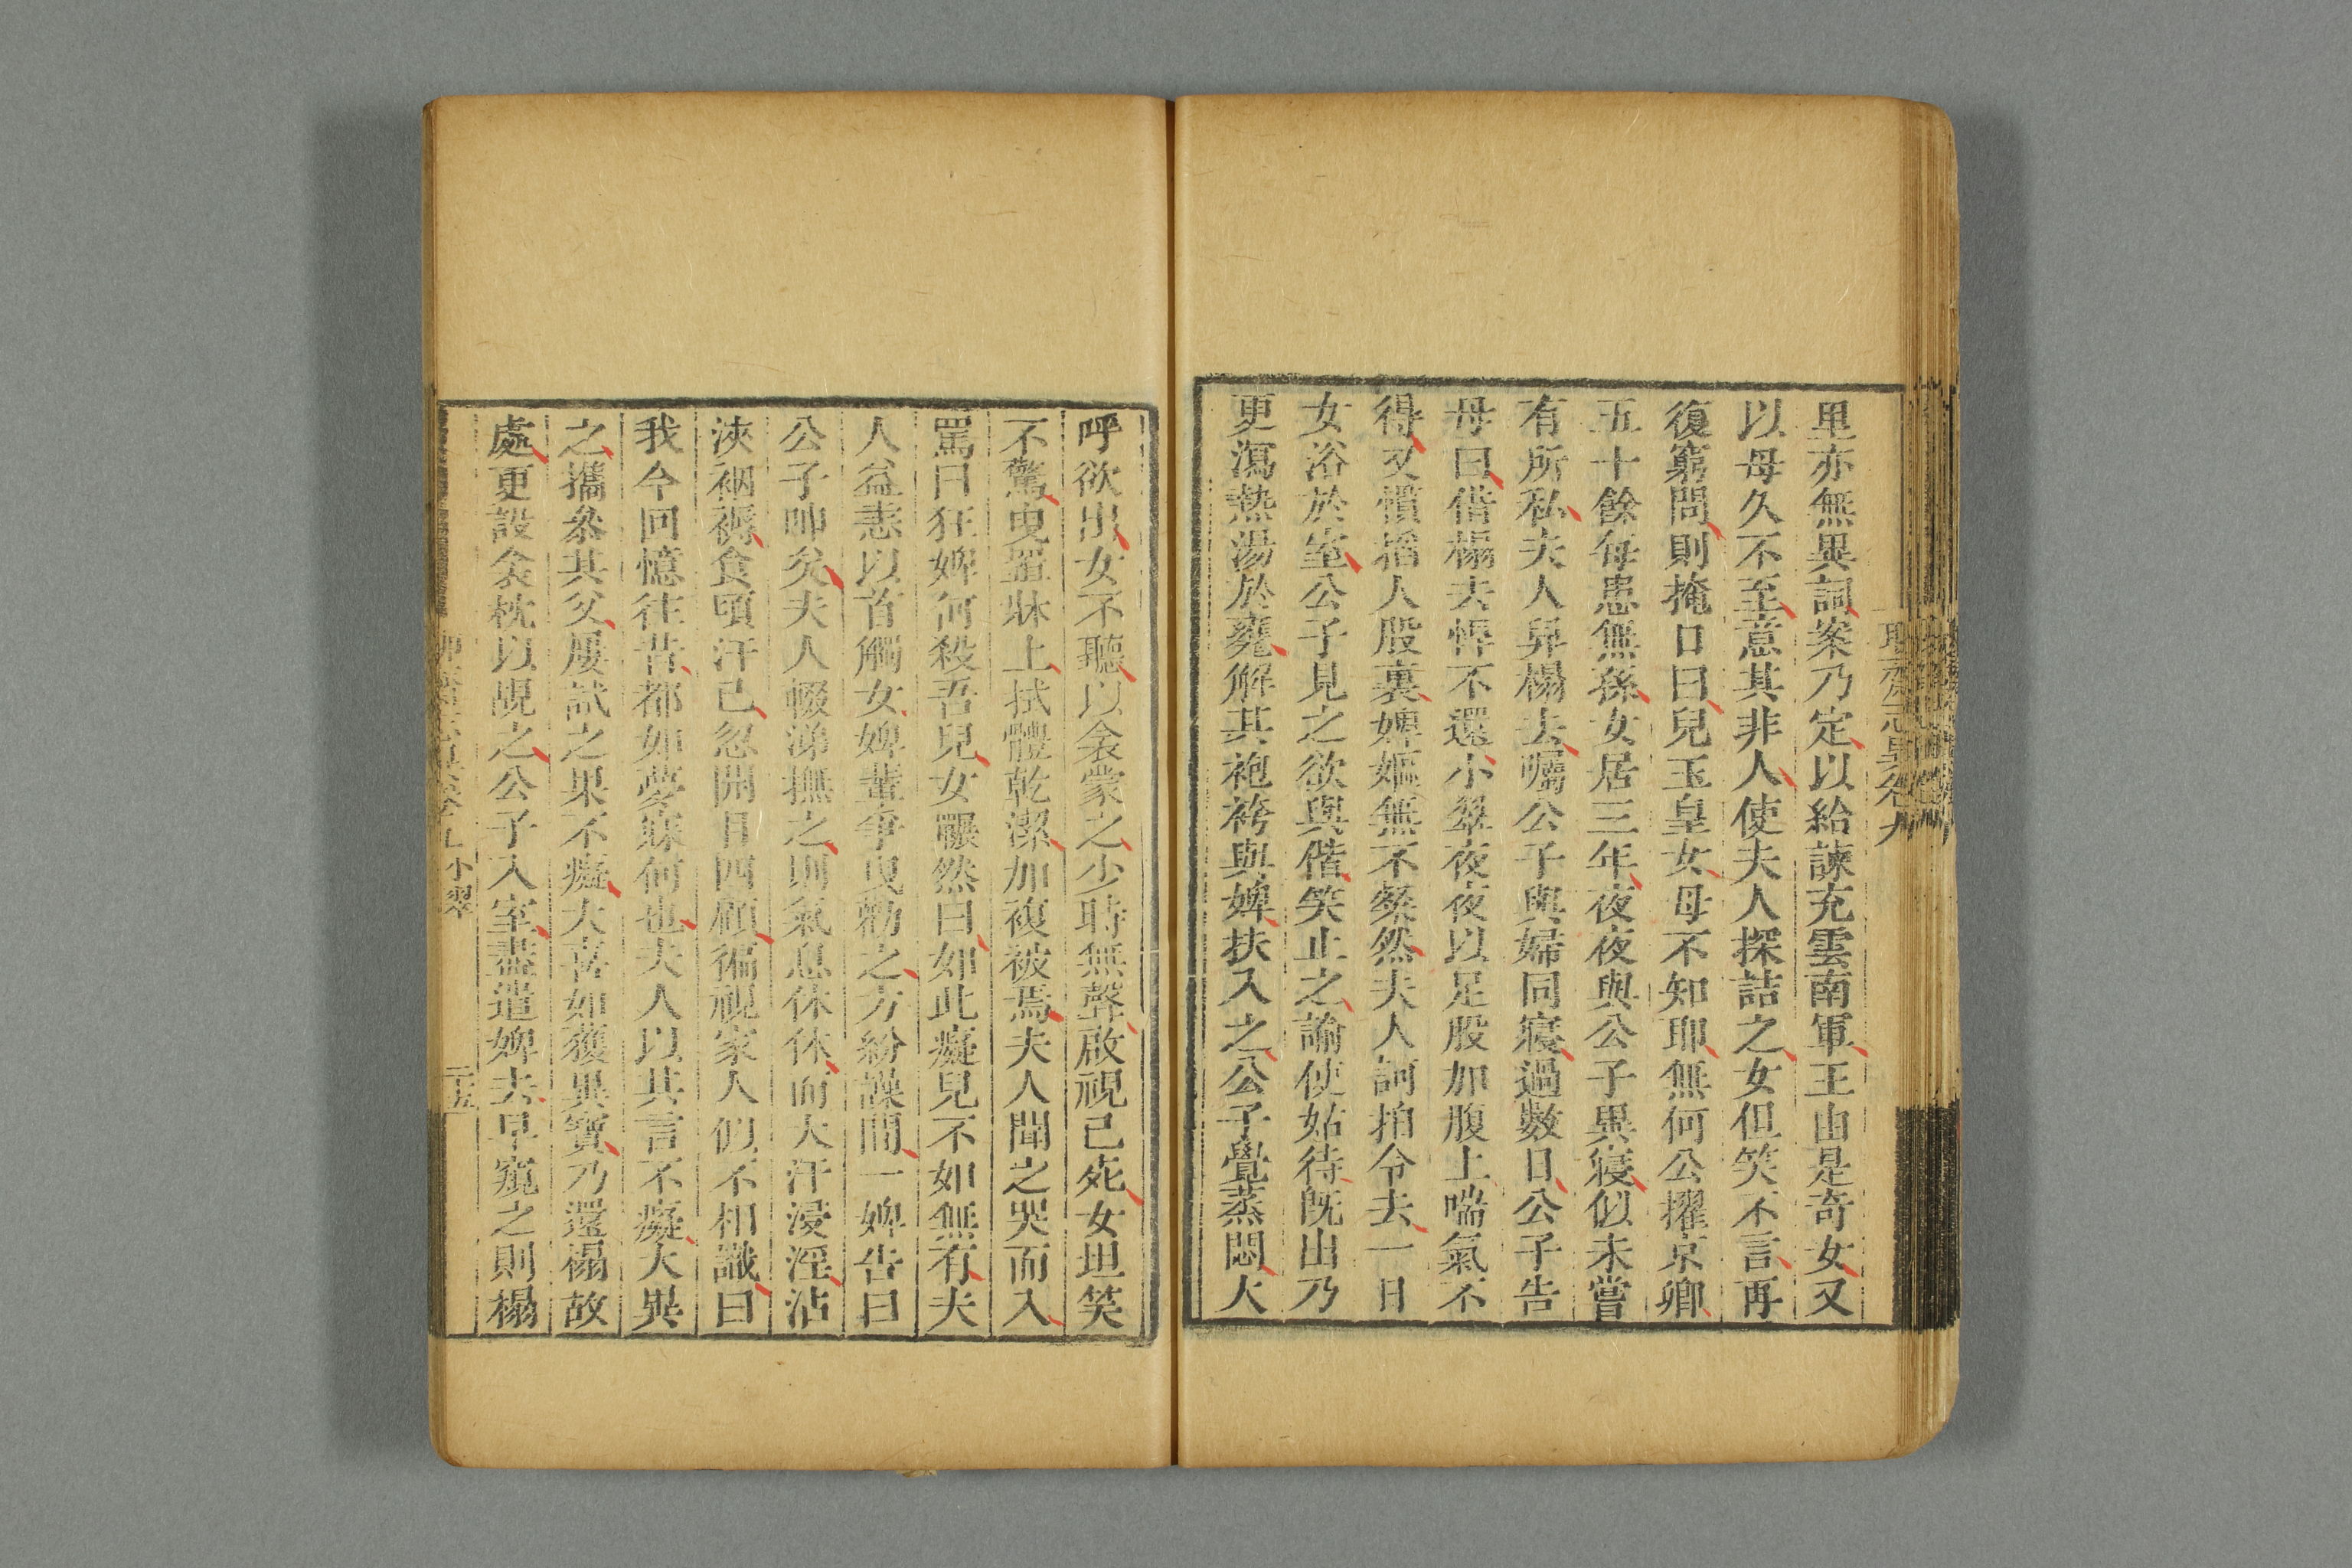 聊齋志異卷九
里亦無異詞案乃定以給諫充雲南軍王由是奇女又
以母久不至意其非人使夫人探詰之女但笑不言再
復窮問則掩口曰兒玉皇女母不知耶無何公擢京卿
五十餘每患無孫女居三年夜夜與公子異寢似未嘗
有所私夫人舁榻去囑公子與婦同寢過數日公子告
母曰借榻去悍不還小翠夜夜以足股加腹上喘氣不
得又慣掐人股裏婢嫗無不粲然夫人訶拍令去一日
女浴於室公子見之欲與偕笑止之諭使姑待既出乃
更瀉熱湯於甕解其袍袴與婢扶入之公子覺蒸悶大
呼欲出女不聽以衾蒙之少時無聲啟視已死女坦笑
不驚曳置牀上拭體乾潔加複被焉夫人聞之哭而入
罵曰狂婢何殺吾兒女囅然曰如此癡兒不如無有夫
人益恚以首觸女婢輩爭曳勸之方紛譟間一婢告曰
公子呻矣夫人輟涕撫之則氣息休休而大汗浸淫沾
浹裀褥食頃汗已忽開目四顧徧視家人似不相識曰
我今回憶往昔都如夢寐何也夫人以其言不癡大異
之攜參其父屢試之果不癡大喜如獲異寶乃還榻故
處更設衾枕以覘之公子入室盡遣婢去早窺之則榻
小翠 二五